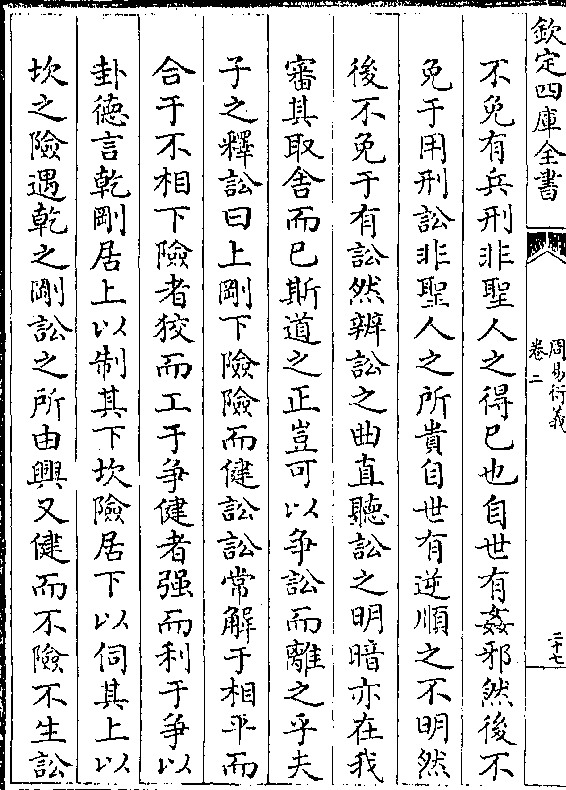 欽定四庫全書
周易衍義
卷二
二十七
不免有兵刑非聖人之得已也自世有姦邪然後不
免于用刑訟非聖人之所貴自世有逆順之不明然
後不免于有訟然辨訟之曲直聽訟之明暗亦在我
審其取舍而已斯道之正豈可以争訟而離之乎夫
子之釋訟曰上剛下險險而健訟訟常解于相平而
合于不相下險者狡而工于争健者强而利于争以
卦德言乾剛居上以制其下坎險居下以伺其上以
坎之險遇乾之剛訟之所由興又健而不險不生訟